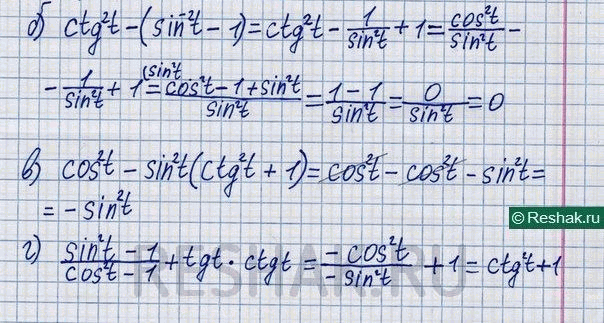 б) ctg²t - (sin⁻²t - 1) = ctg²t - 1/sin²t + 1 = cos²t/sin²t -
- 1/sin²t + 1 (sin²t = (cos²t - 1 + sin²t)/sin²t = (1 - 1)/sin²t = 0/sin²t = 0
в) cos²t - sin²t(ctg²t + 1) = cos²t - cos²t - sin²t =
= - sin²t
© Reshak.ru
г) (sin²t - 1)/(cos²t - 1) + tgt · ctgt = (-cos²t)/(-sin²t) + 1 = ctg²t + 1
RESHAK.RU